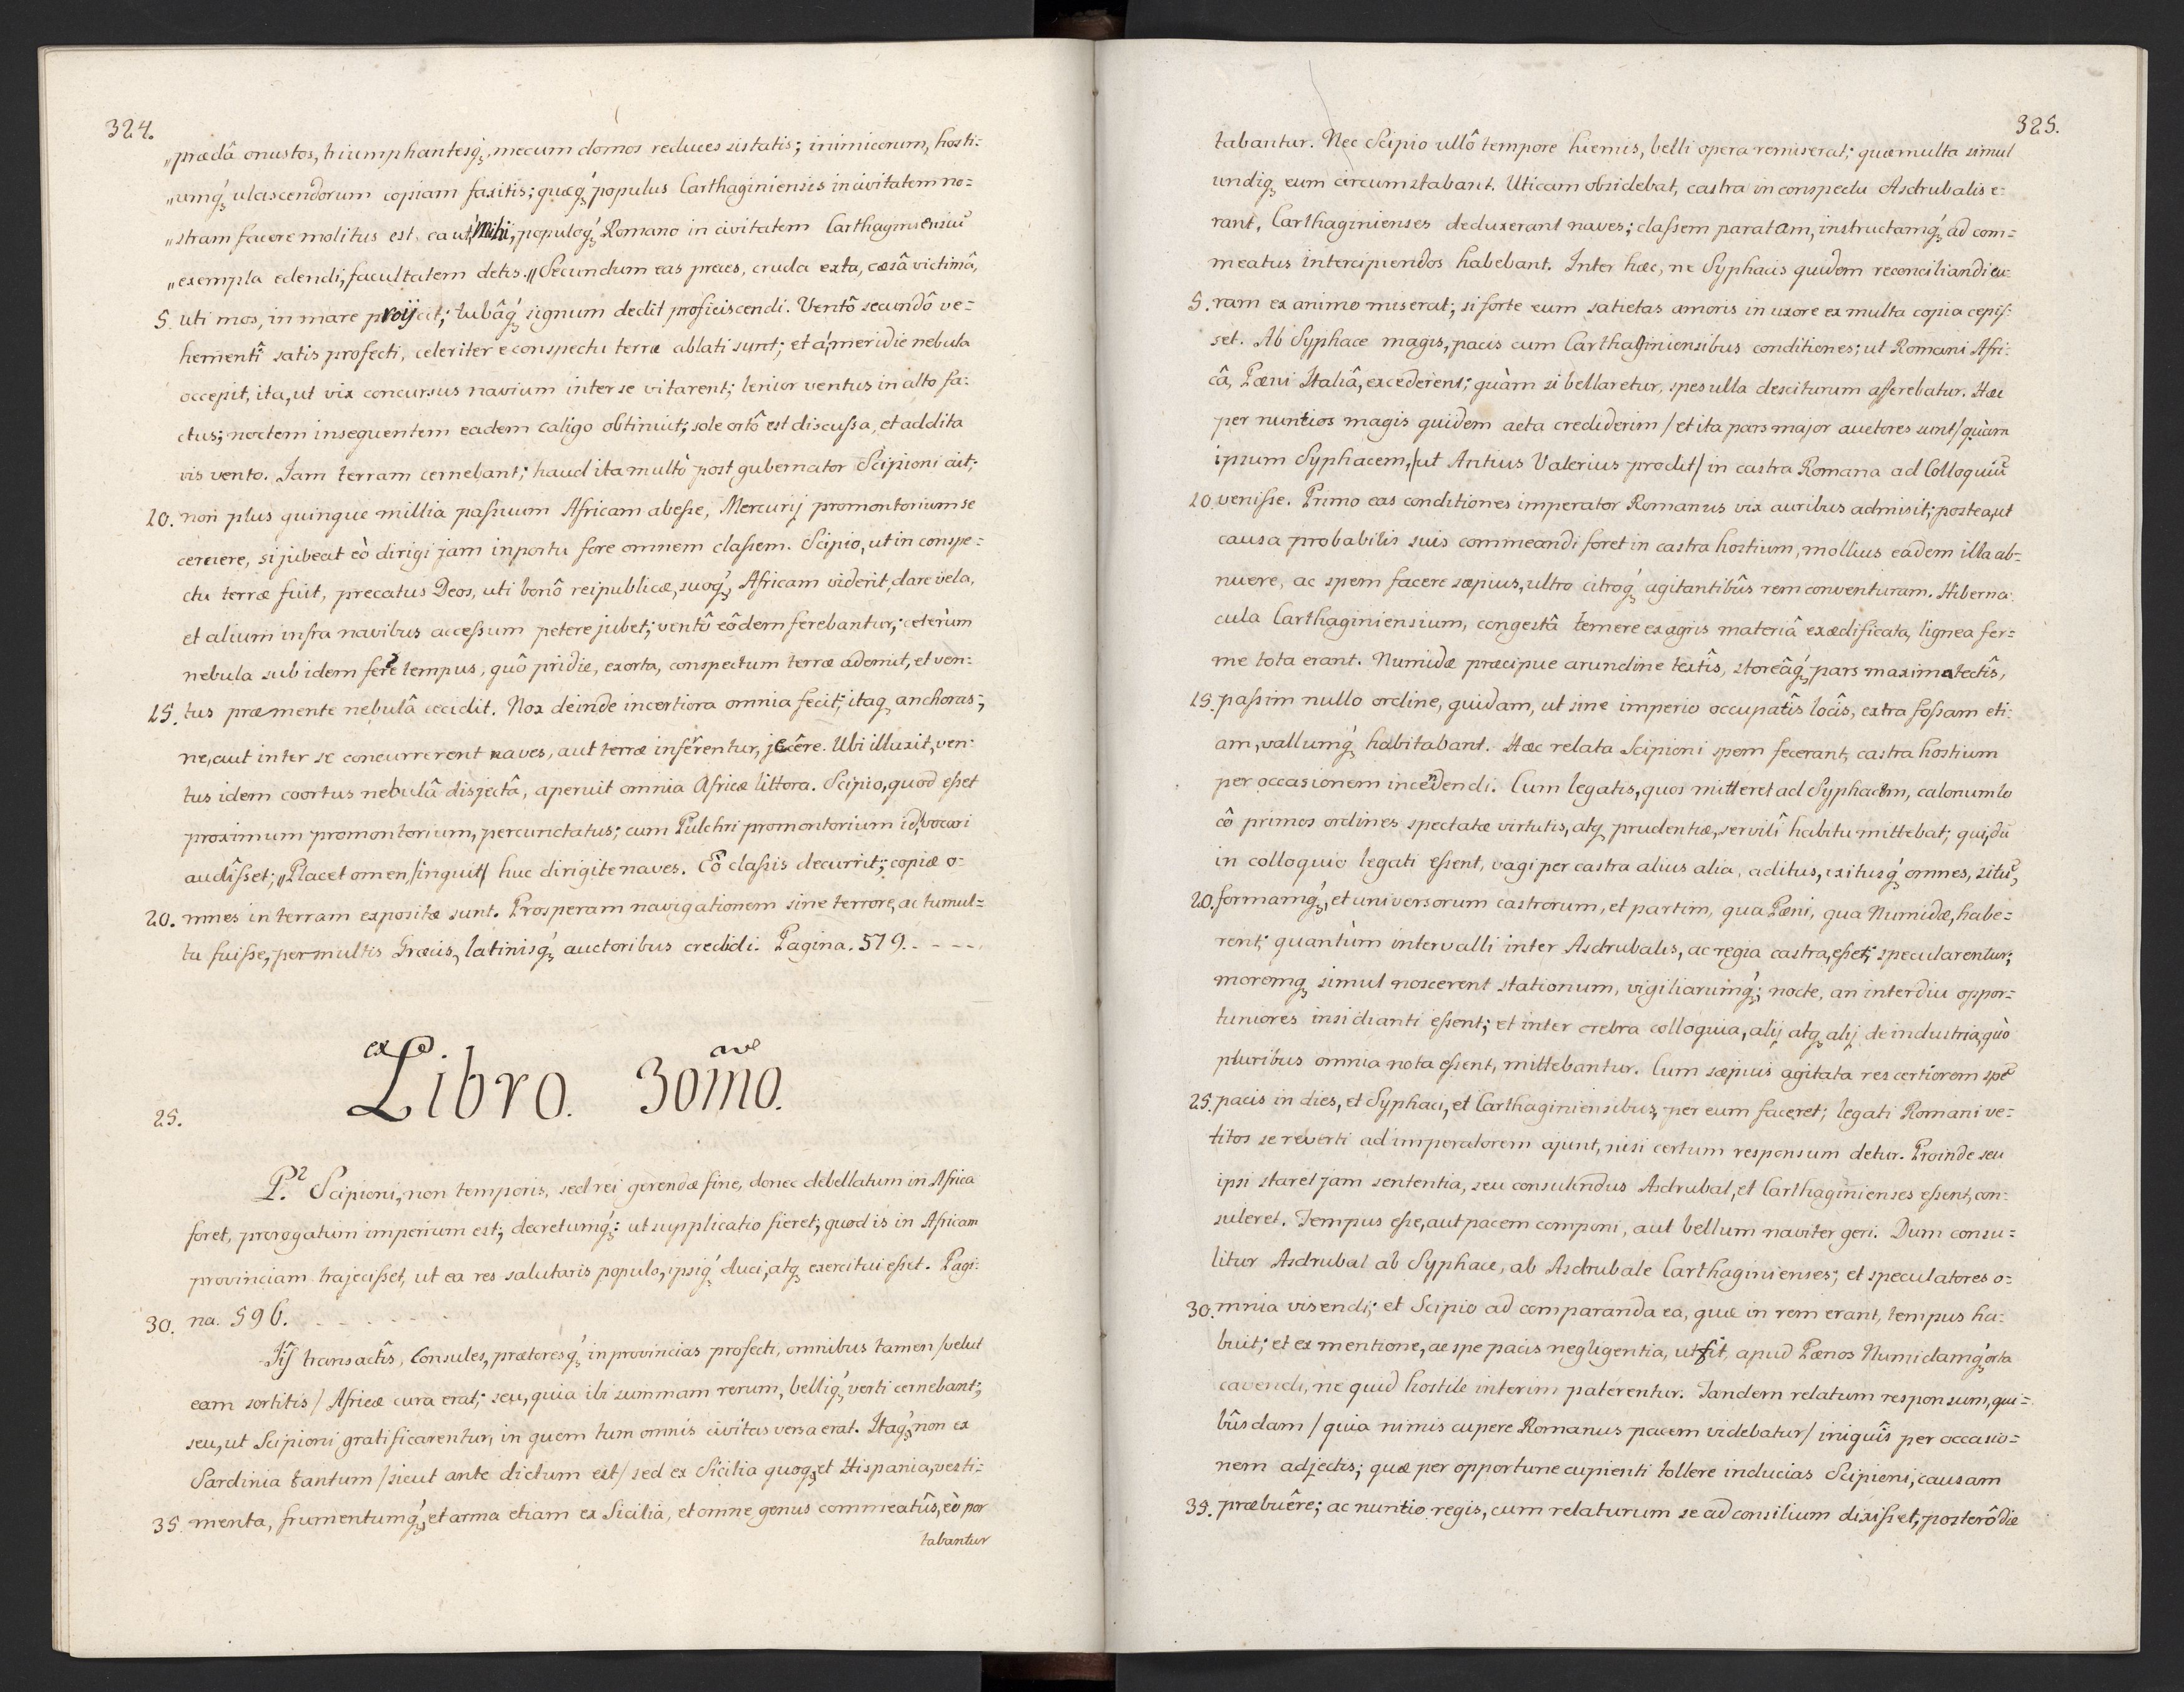 324.
„prædâ onustos, triumphantesq́ue, mecum domos reduces sistatis; inimicorum, hosti=
„umq́ue ulciscendorum copiam faxitis; quæq́ue populus Carthaginiensis in civitatem no=
„stram facere molitus est, ea ut Mihi, populoq́ue Romano in civitatem Carthaginensiũ
„exempla edendi, facultatem detis.„ Secundum eas preces, cruda exta, cæsâ victimâ,
5. uti mos, in mare proijcit; tubâq́ue signum dedit proficiscendi. Ventô secundô ve=
hementî satis profecti, celeriter e conspectu terræ ablati sunt; et á meridie nebula
occepit, ita, ut vix concursus navium inter se vitarent; lenior ventus in alto fa=
ctus; noctem insequentem eadem caligo obtinuit; sole ortô est discussa, et addita
vis vento. Jam terram cernebant; haud ita multò post gubernator Scipioni ait;
10. non plus quinque millia passuum Africam abesse, Mercurij promontorium se
cernere, si jubeat eò dirigi jam in portu fore omnem classem. Scipio, ut in conspe=
ctu terræ fuit, precatus Deos, uti bonô reipublicæ, suoq́ue, Africam viderit, dare vela,
et alium infra navibus accessum petere jubet; ventô eôdem ferebantur; ceterùm
nebula sub idem fere tempus, quô pridie, exorta, conspectum terræ ademit, et ven=
15. tus præmente nebulâ cecidit. Nox deinde incertiora omnia fecit; itaque anchoras;
ne, aut inter se concurrerent naves, aut terræ inferrentur, jecêre. Ubi illuxit, ven=
tus idem coortus nebulâ disjectâ, aperuit omnia Africæ littora. Scipio, quod esset
proximum promontorium, percunctatus; cum Pulchri promontorium id, vocari
audîsset; „Placet omen, /inquit/ huc dirigite naves. Eô classis decurrit; copiæ o=
20. mnes in terram expositæ sunt. Prosperam navigationem sine terrore, ac tumul=
tu fuisse, permultis Græcis, latinisq́ue auctoribus credidi. Pagina. 579. - - - -
ex Libro. 30mo. ave
25.
P.2 Scipioni, non temporis, sed rei gerendæ fine, donec debellatum in Africa
foret, prorogatum imperium est; decretumq́ue: ut supplicatio fieret; quod is in Africam
provinciam trajecisset, ut ea res salutaris populo, ipsiq́ue duci, atque exercitui esset. Pagi=
30. na. 596. - - - - - -
Jis transactîs, Consules, prætoresq́ue in provincias profecti, omnibus tamen /velut
eam sortitis/ Africæ cura erat; seu, quia ibi summam rerum, belliq́ue, verti cernebant;
seu, ut Scipioni gratificarentur, in quem tum omnis civitas versa erat. Itaq́ue non ex
Sardinia tantum /sicut ante dictum est/ sed ex Sicilia quoque, et Hispania, vesti=
35. menta, frumentumq́ue, et arma etiam ex Sicilia, et omne genus commeatûs, eò por
tabantur
325.
tabantur. Nec Scipio ullô tempore hiemis, belli opera remiserat; quæ multa simul
undique eum circumstabant. Uticam obsidebat, castra in conspectu Asdrubalis e=
rant, Carthaginienses deduxerant naves; classem paratam, instructamq́ue ad com=
meatus intercipiendos habebant. Inter hæc, ne Syphacis quidem reconciliandi cu=
5. ram ex animo miserat; si forte eum satietas amoris in uxore ex multa copia cepis=
set. Ab Syphace magis, pacis cum Carthaginiensibus conditiones; ut Romani Afri=
câ, Pæni Italiâ, excederent; quàm si bellaretur, spes ulla desciturum afferebatur. Hæc
per nuntios magis quidem acta crediderim /et ita pars major auctores sunt/ quàm
ipsum Syphacem, /ut Antius Valerius prodit/ in castra Romana ad Colloquiũ
10. venisse. Primo eas conditiones imperator Romanus vix auribus admisit; postea, ut
causa probabilis suis commeandi foret in castra hostium, mollius eadem illa ab=
nuere, ac spem facere sæpius, ultro citroq́ue agitantibûs rem conventuram. Hiberna=
cula Carthaginiensium, congestâ temere ex agris materiâ exædificata, lignea fer=
me tota erant. Numidæ præcipue arundine textîs, storeâq́ue pars maxima tectîs,
15. passim nullo ordine, quidam, ut sine imperio occupatîs locîs, extra fossam eti=
am, vallumq́ue habitabant. Hæc relata Scipioni spem fecerant, castra hostium
per occasionem incendendi. Cum legatis, quos mitteret ad Syphacem, calonum lo
cô primos ordines spectatæ virtutis, atque prudentiæ, servilî habitu mittebat; qui, dũ
in colloquio legati essent, vagi per castra alius alia, aditus, exitusq́ue omnes, sitũ,
20. formamq́ue, et universorum castrorum, et partim, qua Pæni, qua Numidæ, habe=
rent; quantùm intervalli inter Asdrubalis, ac regia castra, esset; specularentur;
moremque simul noscerent stationum, vigiliarumq́ue; nocte, an interdiu oppor=
tuniores insidianti essent; et inter crebra colloquia, alij atque alij de industria, quò
pluribus omnia nota essent, mittebantur. Cum sæpius agitata res certiorem spẽ
25. pacis in dies, et Syphaci, et Carthaginiensibus, per eum faceret; legati Romani ve=
titos se reverti ad imperatorem ajunt, nisi certum responsum detur. Proinde seu
ipsi staret jam sententia, seu consulendus Asdrubal, et Carthaginienses essent, con=
suleret. Tempus esse, aut pacem componi, aut bellum naviter geri. Dum consu=
litur Asdrubal ab Syphace, ab Asdrubale Carthaginienses; et speculatores o=
30. mnia visendi; et Scipio ad comparanda ea, quæ in rem erant, tempus ha=
buit; et ex mentione, ac spe pacis negligentia, ut fit, apud Pænos Numidamq́ue orta
cavendi, ne quid hostile interim paterentur. Tandem relatum responsum, qui=
bûsdam /quia nimis cupere Romanus pacem videbatur/ iniquîs per occasio=
nem adjectis; quæ per opportune cupienti tollere inducias Scipioni, causam
35. præbuêre; ac nuntio regis, cum relaturum se ad consilium dixisset, posterô die